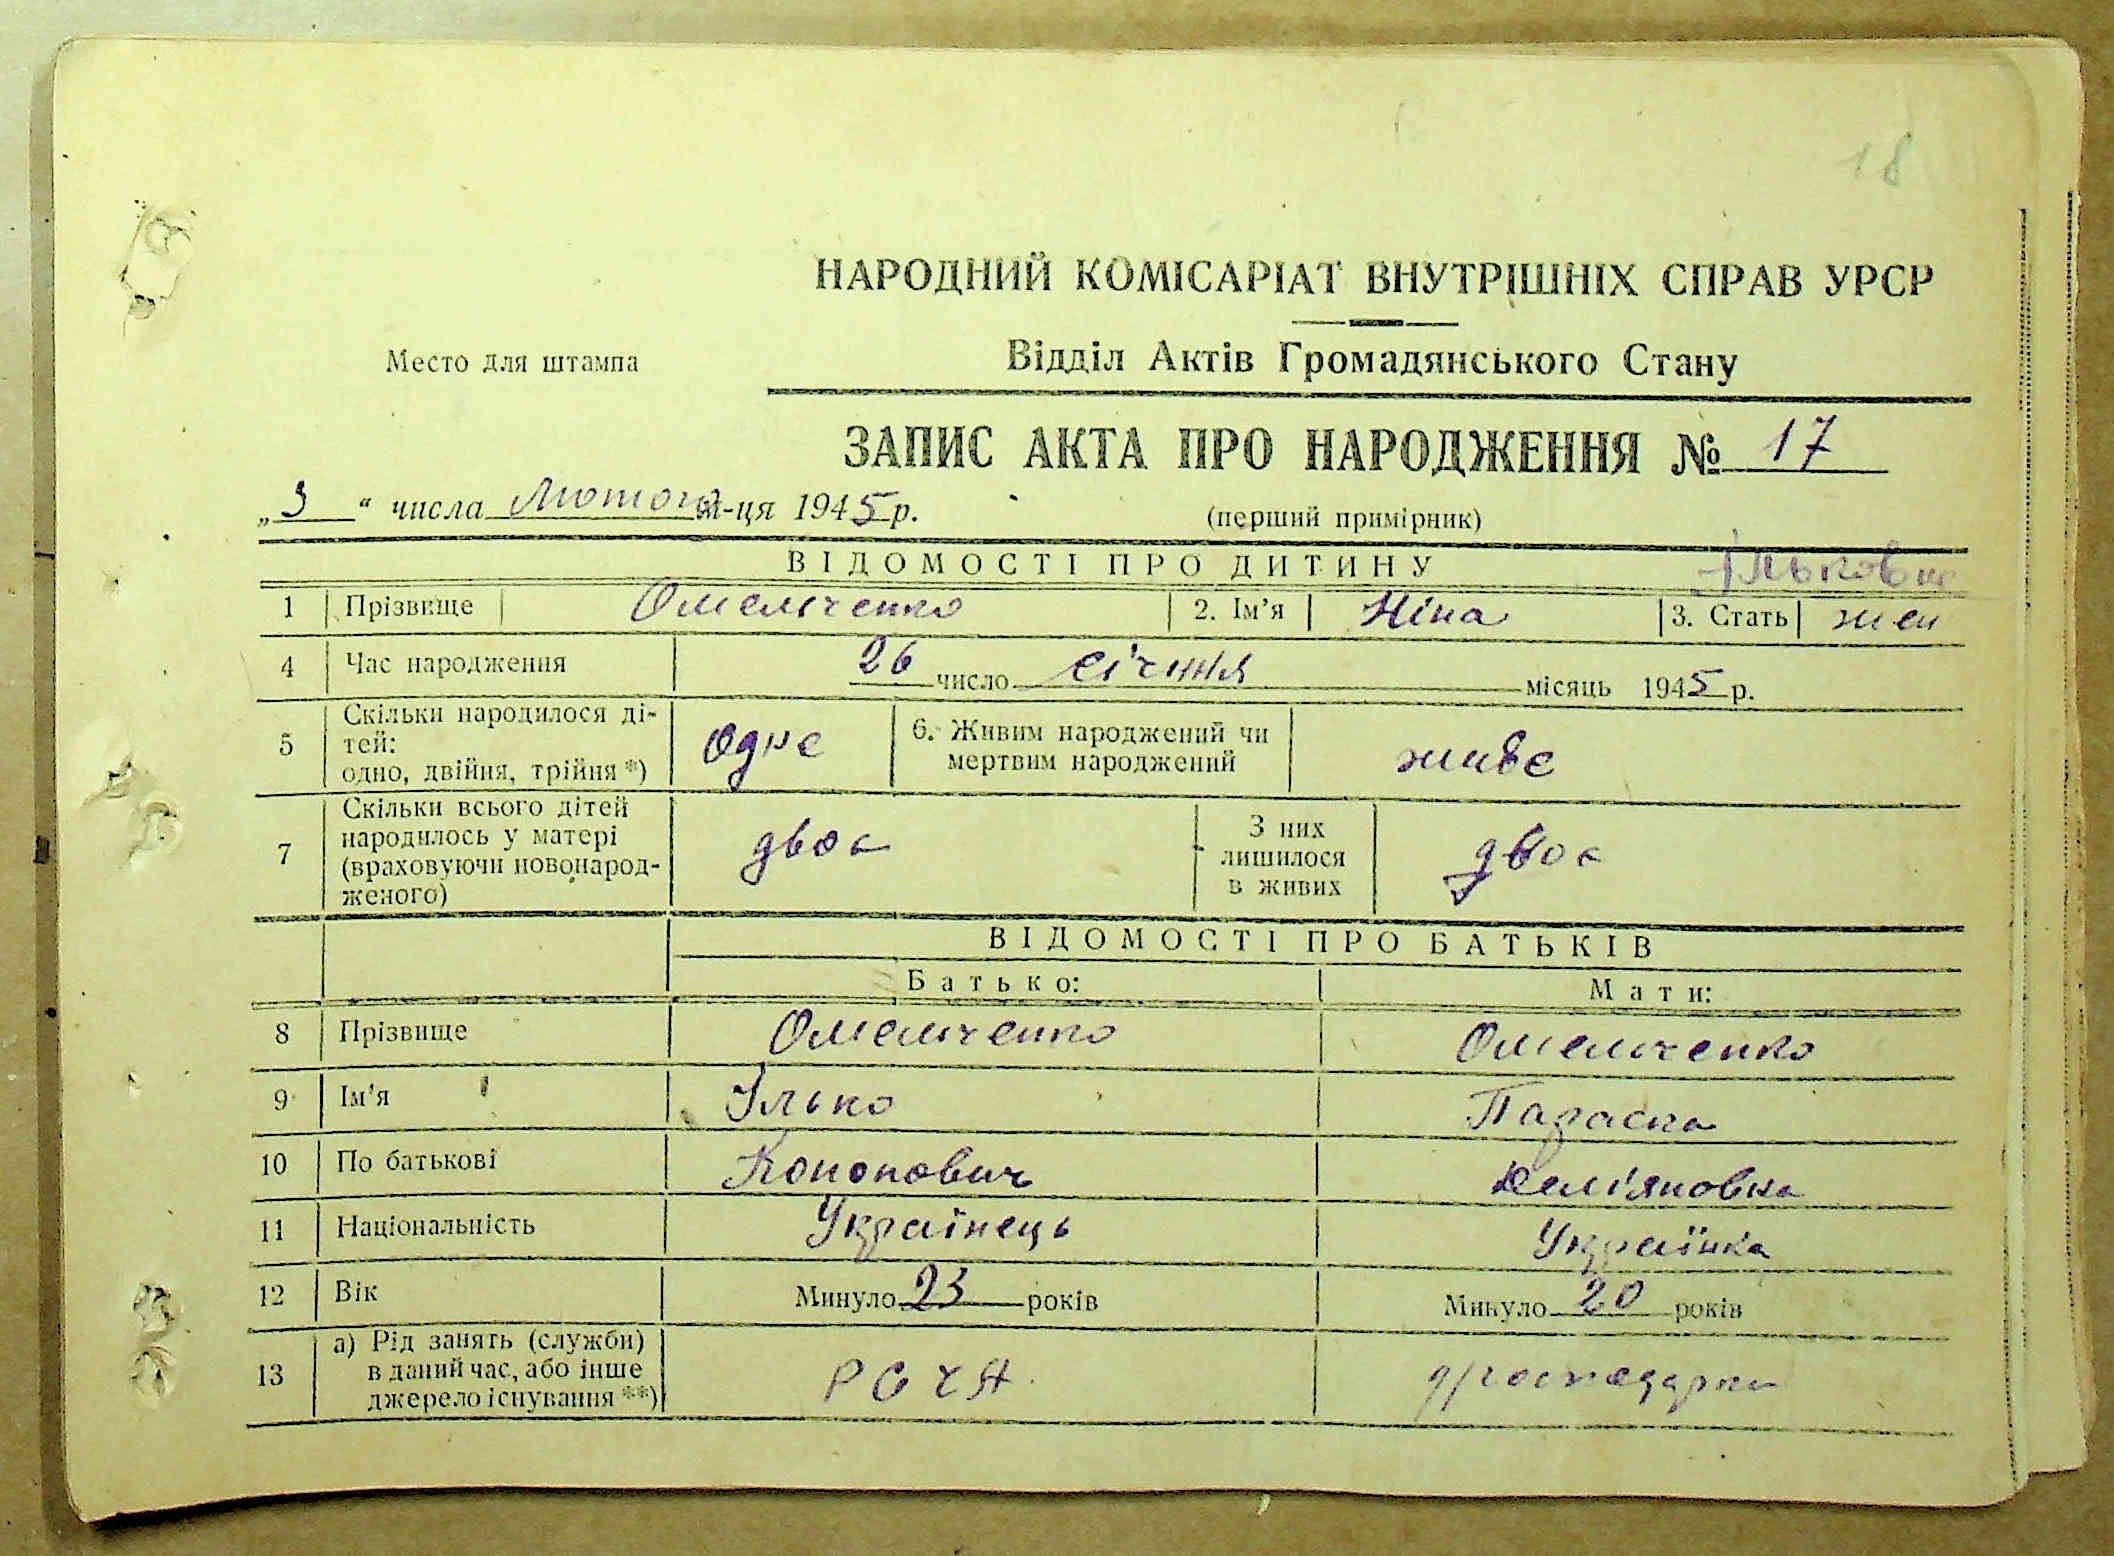 18
НАРОДНИЙ КОМІСАРІАТ ВНУТРІШНІХ СПРАВ УРСР
Место для штампа
Відділ Актів Громадянського Стану
ЗАПИС АКТА ПРО НАРОДЖЕННЯ № 17
„3“ числа Лютого м-ця 1945 р.
(перший примірник)
ВІДОМОСТІ ПРО ДИТИНУ
1 Прізвище Омельченко 2. Ім'я Ніна 3. Стать жен
4 Час народження 26 число січння місяць 1945 р.
5 Скільки народилося ді-
тей:
одно, двійня, трійня *) одне 6. Живим народжений чи
мертвим народжений живе
7 Скільки всього дітей
народилось у матері
(враховуючи новонарод-
женого) двоє З них
лишилося
в живих двоє
ВІДОМОСТІ ПРО БАТЬКІВ
Батько: Мати:
8 Прізвище Омельченко Омельченко
9 Ім'я Ілько Параска
10 По батькові Кононович Демяновна
11 Національність Українець Українка
12 Вік Минуло 23 років Минуло 20 років
13 а) Рід занять (служби)
в даний час, або інше
джерело існування **) РСЧА